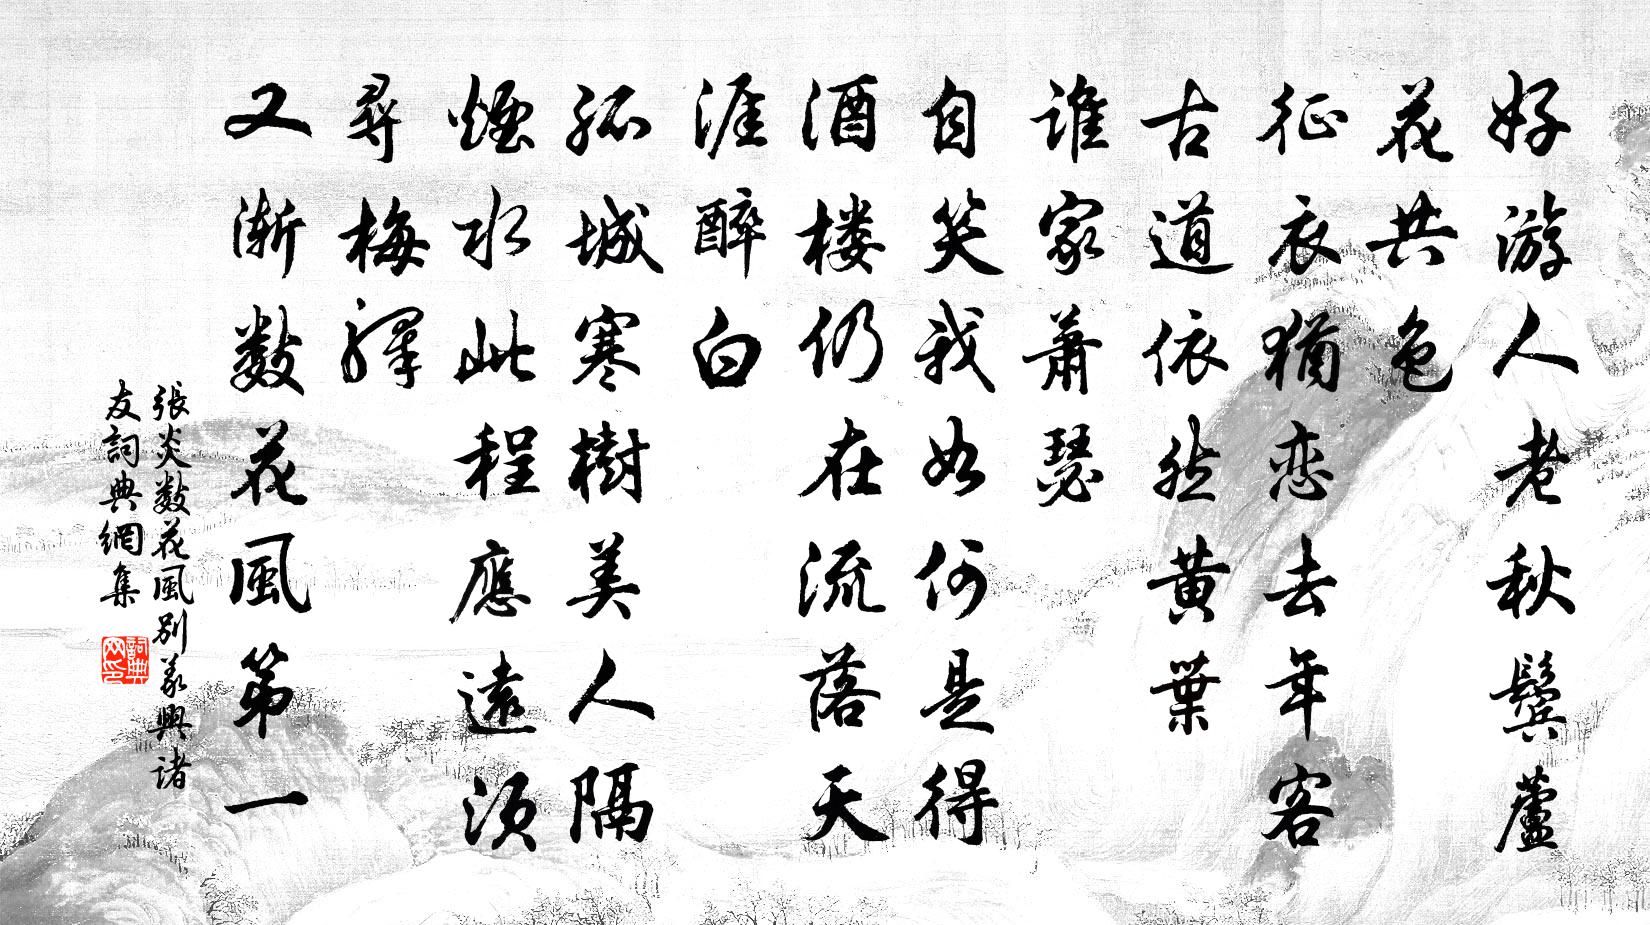 好游人老秋鬢蘆
花共色
征衣猶恋去年客
古道依然黄葉
谁家萧瑟
自笑我如何是得
酒楼仍在流落天
涯醉白
孤城寒樹美人隔
煙水此程應遠須
尋梅驛
又漸数花風第一
張炎数花風别義興諸
友詞典網集
詞典
网印